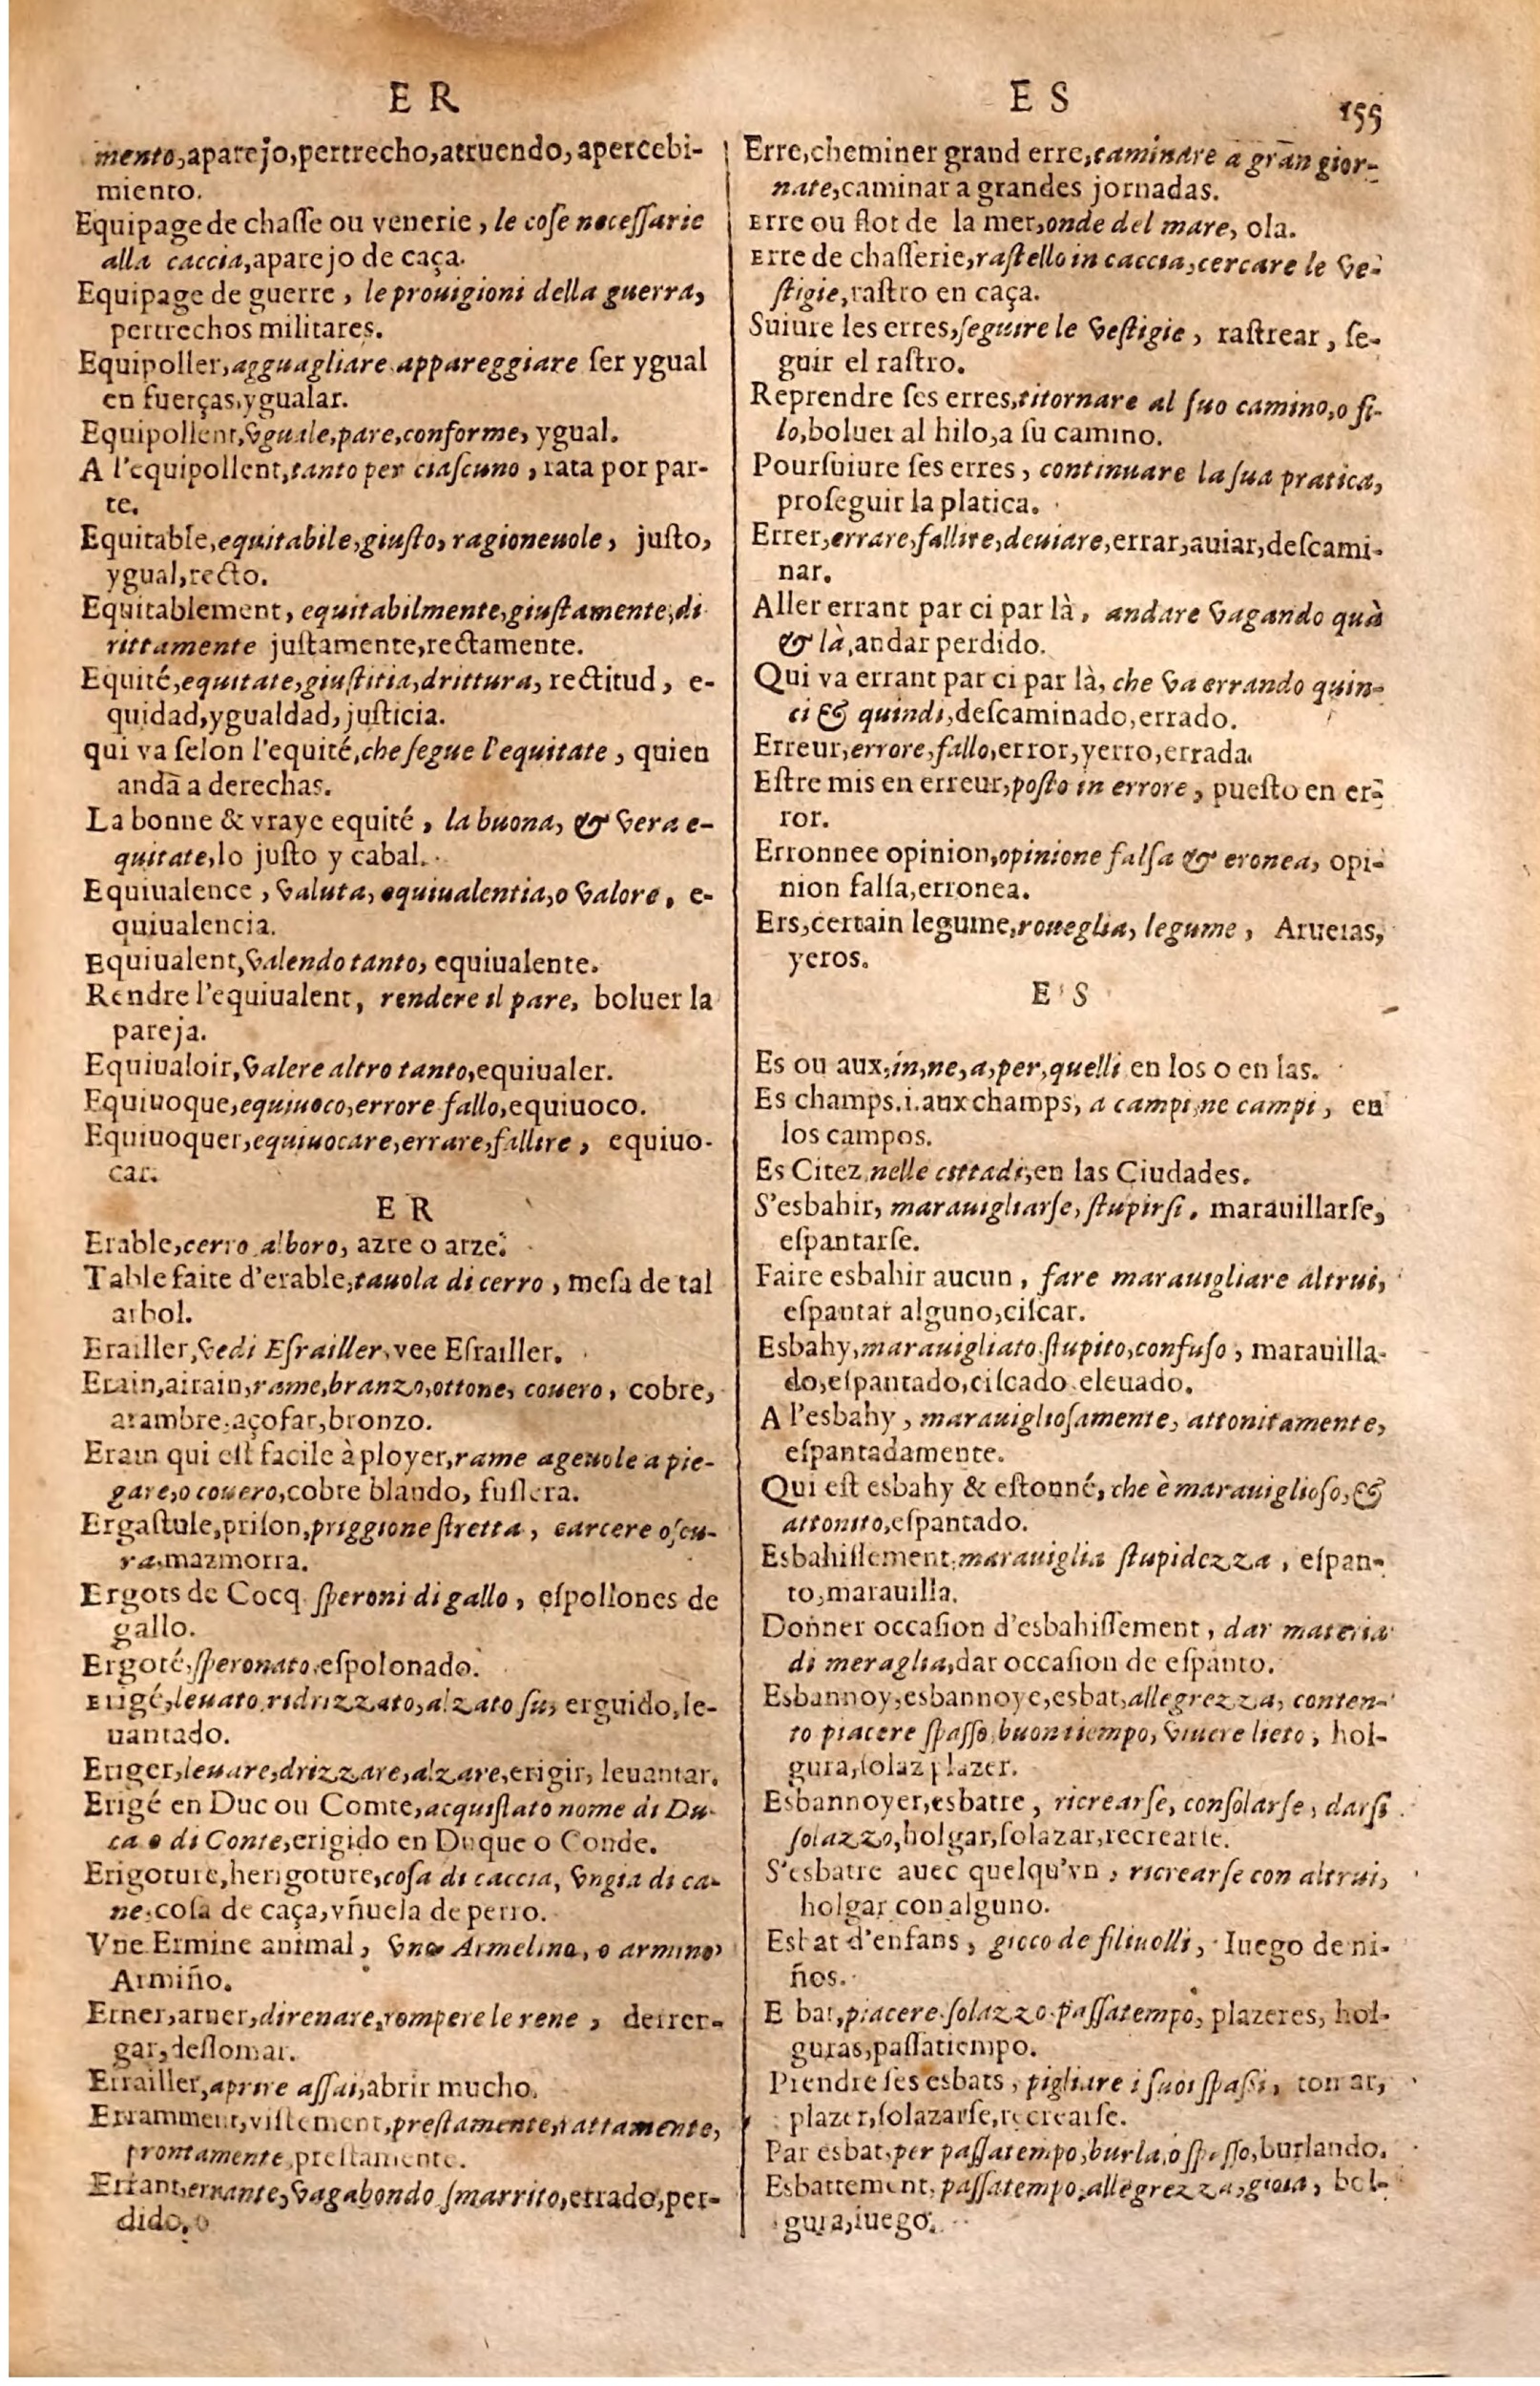 E R
mento, aparejo, pertrecho, atruendo, apercebi-
miento.
Equipage de chaſſe ou venerie, le coſe neceſſarie
alla caccia, aparejo de caça.
Equipage de guerre, le prouigioni della guerra,
pertrechos militares.
Equipoller, agguagliare appareggiare ſer ygual
en fuerças, ygualar.
Equipollent, vguale, pare, conforme, ygual.
A l'equipollent, tanto per ciaſcuno, rata por par-
te.
Equitable, equitabile, giuſto, ragioneuole, juſto,
ygual, recto.
Equitablement, equitabilmente, giuſtamente, di
rittamente juſtamente, rectamente.
Equité, equitate, giuſtitia, drittura, rectitud, e-
quidad, ygualdad, juſticia.
qui va ſelon l'equité, che ſegue l'equitate, quien
andā a derechas.
La bonne & vraye equité, la buona, & vera e-
quitate, lo juſto y cabal.
Equiualence, valuta, equiualentia, o valore, e-
quiualencia.
Equiualent, valendo tanto, equiualente.
Rendre l'equiualent, rendere il pare, boluer la
pareja.
Equiualoir, valere altro tanto, equiualer.
Equiuoque, equiuoco, errore fallo, equiuoco.
Equiuoquer, equiuocare, errare, fallire, equiuo-
car.
E R
Erable, cerro alboro, azre o arze.
Table faite d'erable, tauola di cerro, meſa de tal
arbol.
Erailler, vedi Eſrailler, vee Eſrailler.
Erain, airain, rame, branzo, ottone, couero, cobre,
arambre, açofar, bronzo.
Erain qui eſt facile à ployer, rame ageuole a pie-
gare, o couero, cobre blando, fuſlera.
Ergaſtule, priſon, priggione ſtretta, carcere oſcu-
ra, mazmorra.
Ergots de Cocq ſperoni di gallo, eſpollones de
gallo.
Ergoté, ſperonato, eſpolonado.
Erigé, leuato, ridrizzato, alzato ſu, erguido, le-
uantado.
Eriger, leuare, drizzare, alzare, erigir, leuantar.
Erigé en Duc ou Comte, acquiſtato nome di Du-
ca o di Conte, erigido en Duque o Conde.
Erigoture, herigoture, coſa di caccia, vngia di ca-
ne, coſa de caça, vñuela de perro.
Vne Ermine animal, vno Armelino, o armino
Armiño.
Erner, arner, direnare, rompere le rene, derren-
gar, deſlomar.
Errailler, aprire aſſai, abrir mucho.
Erramment, viſtement, preſtamente, rattamente,
prontamente, preſtamente.
Errant, errante, vagabondo ſmarrito, errado, per-
dido.
E S 155
Erre, cheminer grand erre, caminare a gran gior-
nate, caminar a grandes jornadas.
Erre ou flot de la mer, onde del mare, ola.
Erre de chaſſerie, raſtello in caccia, cercare le ve-
ſtigie, raſtro en caça.
Suiure les erres, ſeguire le veſtigie, raſtrear, ſe-
guir el raſtro.
Reprendre ſes erres, ritornare al ſuo camino, o fi-
lo, boluer al hilo, a ſu camino.
Pourſuiure ſes erres, continuare la ſua pratica,
proſeguir la platica.
Errer, errare, fallire, deuiare, errar, auiar, deſcami-
nar.
Aller errant par ci par là, andare vagando quà
& là, andar perdido.
Qui va errant par ci par là, che va errando quin-
ci & quindi, deſcaminado, errado.
Erreur, errore, fallo, error, yerro, errada.
Eſtre mis en erreur, poſto in errore, pueſto en er-
ror.
Erronnee opinion, opinione falſa & eronea, opi-
nion falſa, erronea.
Ers, certain legume, roueglia, legume, Arueias,
yeros.
E S
Es ou aux, in, ne, a, per, quelli en los o en las.
Es champs. i. aux champs, a campi, ne campi, en
los campos.
Es Citez, nelle cittadi, en las Ciudades.
S'esbahir, marauigliarſe, ſtupirſi, marauillarſe,
eſpantarſe.
Faire esbahir aucun, fare marauigliare altrui,
eſpantar alguno, ciſcar.
Esbahy, marauigliato, ſtupito, confuſo, marauilla-
do, eſpantado, ciſcado eleuado.
A l'esbahy, marauiglioſamente, attonitamente,
eſpantadamente.
Qui eſt esbahy & eſtonné, che è marauiglioſo, &
attonito, eſpantado.
Esbahiſſement, marauiglia ſtupidezza, eſpan-
to, marauilla.
Donner occaſion d'esbahiſſement, dar materia
di meraglia, dar occaſion de eſpanto.
Esbannoy, esbannoye, esbat, allegrezza, conten-
to piacere ſpaſſo, buon tiempo, viuere lieto, hol-
gura, ſolaz plazer.
Esbannoyer, esbatre, ricrearſe, conſolarſe, darſi
ſolazzo, holgar, ſolazar, recrearſe.
S'esbatre auec quelqu'vn, ricrearſe con altrui,
holgar con alguno.
Esbat d'enfans, giocco de filiuolli, Iuego de ni-
ños.
E bat, piacere ſolazzo paſſatempo, plazeres, hol-
guras, paſſatiempo.
Prendre ſes esbats, pigliare i ſuoi ſpaſſi, tomar,
plazer, ſolazarſe, recrearſe.
Par esbat, per paſſatempo, burla, o ſpaſſo, burlando.
Esbattement, paſſatempo, allegrezza, gioia, hol-
gura, iuego.